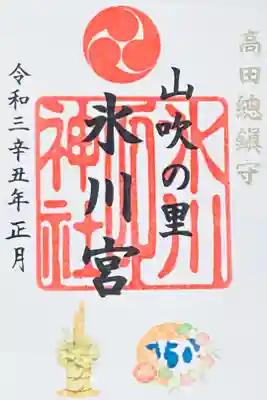 高田總鎮守
山吹の里
氷川宮
氷川神社
令和三辛丑年 正月